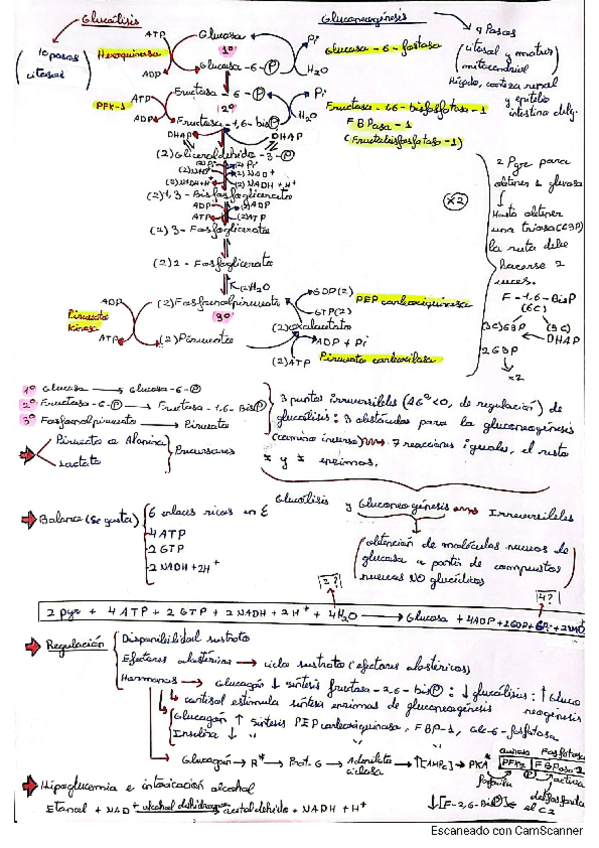 Glucólisis
Gluconeogénesis
9 Pasos
(citosol y matriz mitocondrial)
Hígado, corteza renal
y epitelio
intestino delg.
10 pasos
citosol
ATP
Glucosa
Pi
Hexoquinasa
1º
Glucosa-6-fosfatasa
ADP
Glucosa-6-P
H2O
ATP
Pi
PFK-1
2º
Fructosa-1,6-bisfosfatasa-1
ADP
Fructosa-1,6-bisP
H2O
FBPasa-1
DHAP
DHAP
(Fructobisfosfatasa-1)
(2)Gliceraldehído-3-P
(2)Pi
(2)Pi
(2)NAD+
(2)NAD+
(2)NADH+H+
(2)NADH+H+
(2)1,3-Bisfosfoglicerato
ADP
(2)ADP
ATP
(2)ATP
(2)3-Fosfoglicerato
(2)2-Fosfoglicerato
H2O
x2
2 Pyr para
obtener 1 glucosa
Hasta obtener
una triosa (G3P)
la ruta debe
hacerse 2
veces.
F-1,6-BisP
(6C)
(3C)G3P
(3C)
DHAP
2G3P
x2
ADP
(2)Fosfoenolpiruvato
GDP(2)
PEP carboxiquinasa
GTP(2)
Piruvato
kinasa
3º
(2)oxalacetato
ATP
(2)Piruvato
ADP + Pi
(2)ATP
Piruvato carboxilasa
1º Glucosa → Glucosa-6-P
2º Fructosa-6-P → Fructosa-1,6-BisP
3º Fosfoenolpiruvato → Piruvato
3 puntos irreversibles (ΔGº<0, de regulación) de
glucólisis: 3 obstáculos para la gluconeogénesis
(camino inverso) 7 reacciones iguales, el resto
≠ y ≠ enzimas.
Piruvato a Alanina
Lactato
Precursores
Glucólisis y Gluconeogénesis Irreversibles
Balance (Se gasta)
6 enlaces ricos en E
4 ATP
2 GTP
2 NADH+2H+
obtención de moléculas nuevas de
glucosa a partir de compuestos
nuevos NO glucídicos
2?
4?
2 pyr + 4 ATP + 2 GTP + 2 NADH + 2 H+ + 4H2O → Glucosa + 4ADP + 2GDP + 6Pi + 2NAD+
Regulación
Disponibilidad sustrato
Efectores alostéricos → ciclo sustrato (efectores alostéricos)
Hormonas → Glucagón ↓ síntesis fructosa-2,6-bisP: ↓ glucólisis: ↑ Gluco
neogénesis
cortisol estimula síntesis enzimas de gluconeogénesis
Glucagón ↑ síntesis PEP carboxiquinasa, FBP-1, Glc-6-fosfatasa
Insulina ↓
Glucagón → R* → Prot. G → Adenilato
ciclasa
→ ↑[AMPc] → PKA*
PFK2
FBPasa-2
fosforila
activa
↓[F-2,6-BisP]
Hipoglucemia e intoxicación alcohol
Etanol + NAD+ alcohol deshidrogenasa acetaldehído + NADH + H+
Escaneado con CamScanner